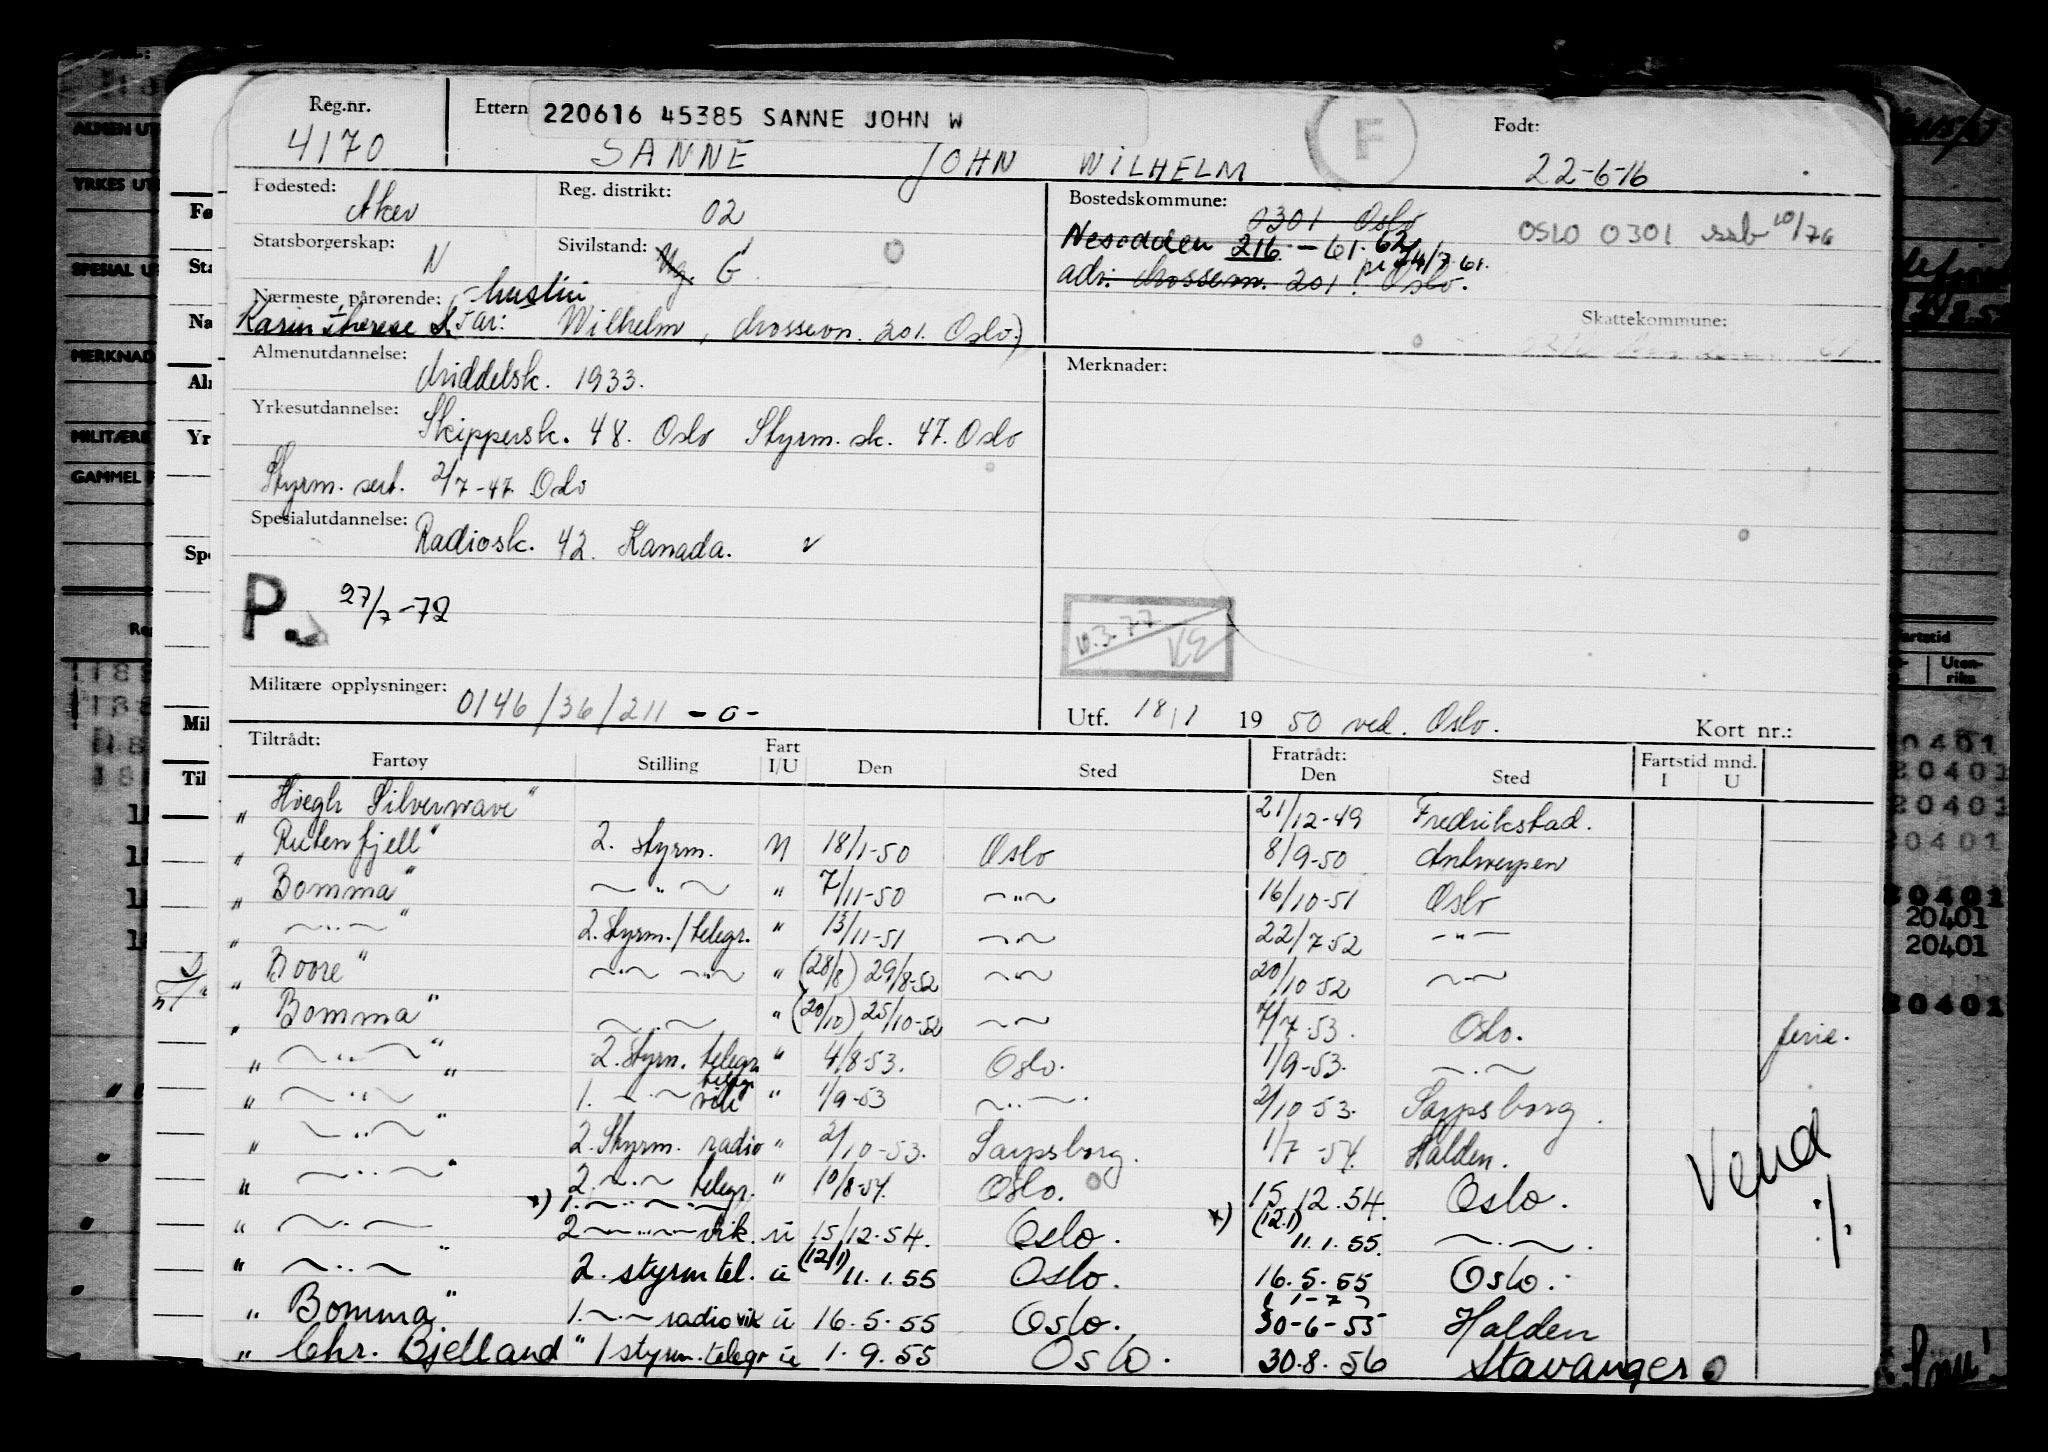 Reg.nr. Ettern 220616 45385 SANNE JOHN W F Født:
4170 SANNE JOHN WILHELM 22-6-16
Fødested: Aker Reg. distrikt: 02 Bostedskommune: 0301 Oslo OSLO 0301 ssb 10/76
Statsborgerskap: N Sivilstand: Ug. G Nesodden 216 - 61. 62
adr. Mossevn. 201. Oslo.
Nærmeste pårørende: hustru
Karin Therese Far: Wilhelm, Mossevn. 201. Oslo) Skattekommune:
Almenutdannelse: Middelsk. 1933. Merknader:
Yrkesutdannelse: Skippersk. 48. Oslo Styrm. sk. 47. Oslo
Styrm. sert. 2/7-47. Oslo
Spesialutdannelse: Radiosk. 42. Kanada. v
P. 27/7-72
10.3.77 KE
Militære opplysninger: 0146/36/211 -o- Utf. 18/1 1950 ved. Oslo. Kort nr.:
Tiltrådt: Fartøy Stilling Fart I/U Den Sted Fratrådt: Den Sted Fartstid mnd. I U
" Høegh Silverwave" 21/12-49 Fredrikstad.
" Rutenfjell" 2. styrm. U 18/1-50 Oslo 8/9-50 Antwerpen
" Bomma" ~"~ " 7/11-50 ~"~ 16/10-51 Oslo
" ~"~" 2. styrm./telegr. " 13/11-51 ~"~ 22/7-52 ~"~
" Boore" ~"~ ~"~ " (28/8) 29/8-52 ~"~ 20/10 52 ~"~
" Bomma" ~"~ " (20/10) 25/10-52 ~"~ 7/7-53. Oslo. ferie.
" ~"~" 2. styrm. telegr. " 4/8-53. Oslo. 1/9-53. ~"~
" ~"~" 1. ~"~ telegr. vik " 1/9-53 ~"~ 2/10 53. Sarpsborg.
" ~"~" 2. Styrm. radio " 2/10-53. Sarpsborg. 1/7-54. Halden. Vend
" ~"~" 2. ~"~ telegr. " 10/8-54. Oslo. 15.12.54. Oslo. ./.
x) 1. ~"~"~
" ~"~ 2 ~"~ vik. u 15/12-54. Oslo. x) (12.1) 11.1.55. ~"~.
" ~"~" 2. styrm tel. u (12/1) 11.1.55 Oslo. 16.5.55 Oslo.
" Bomma" 1. ~"~ radio vik u 16.5.55 Oslo. 30-6-55 Halden
" Chr. Bjelland" 1 styrm. telegr u 1.9.55 Oslo. 30.8.56 Stavanger
ALMEN UT
YRKES UT
SPESIAL U
MERKNAD
MILITÆRE
GAMMEL
Fø
Sta
Na
Al
Yr
Spe
Mil
Til
Fartstid
Uten-
riks
20401
20401
20401
20401
20401
20401
20401
20401